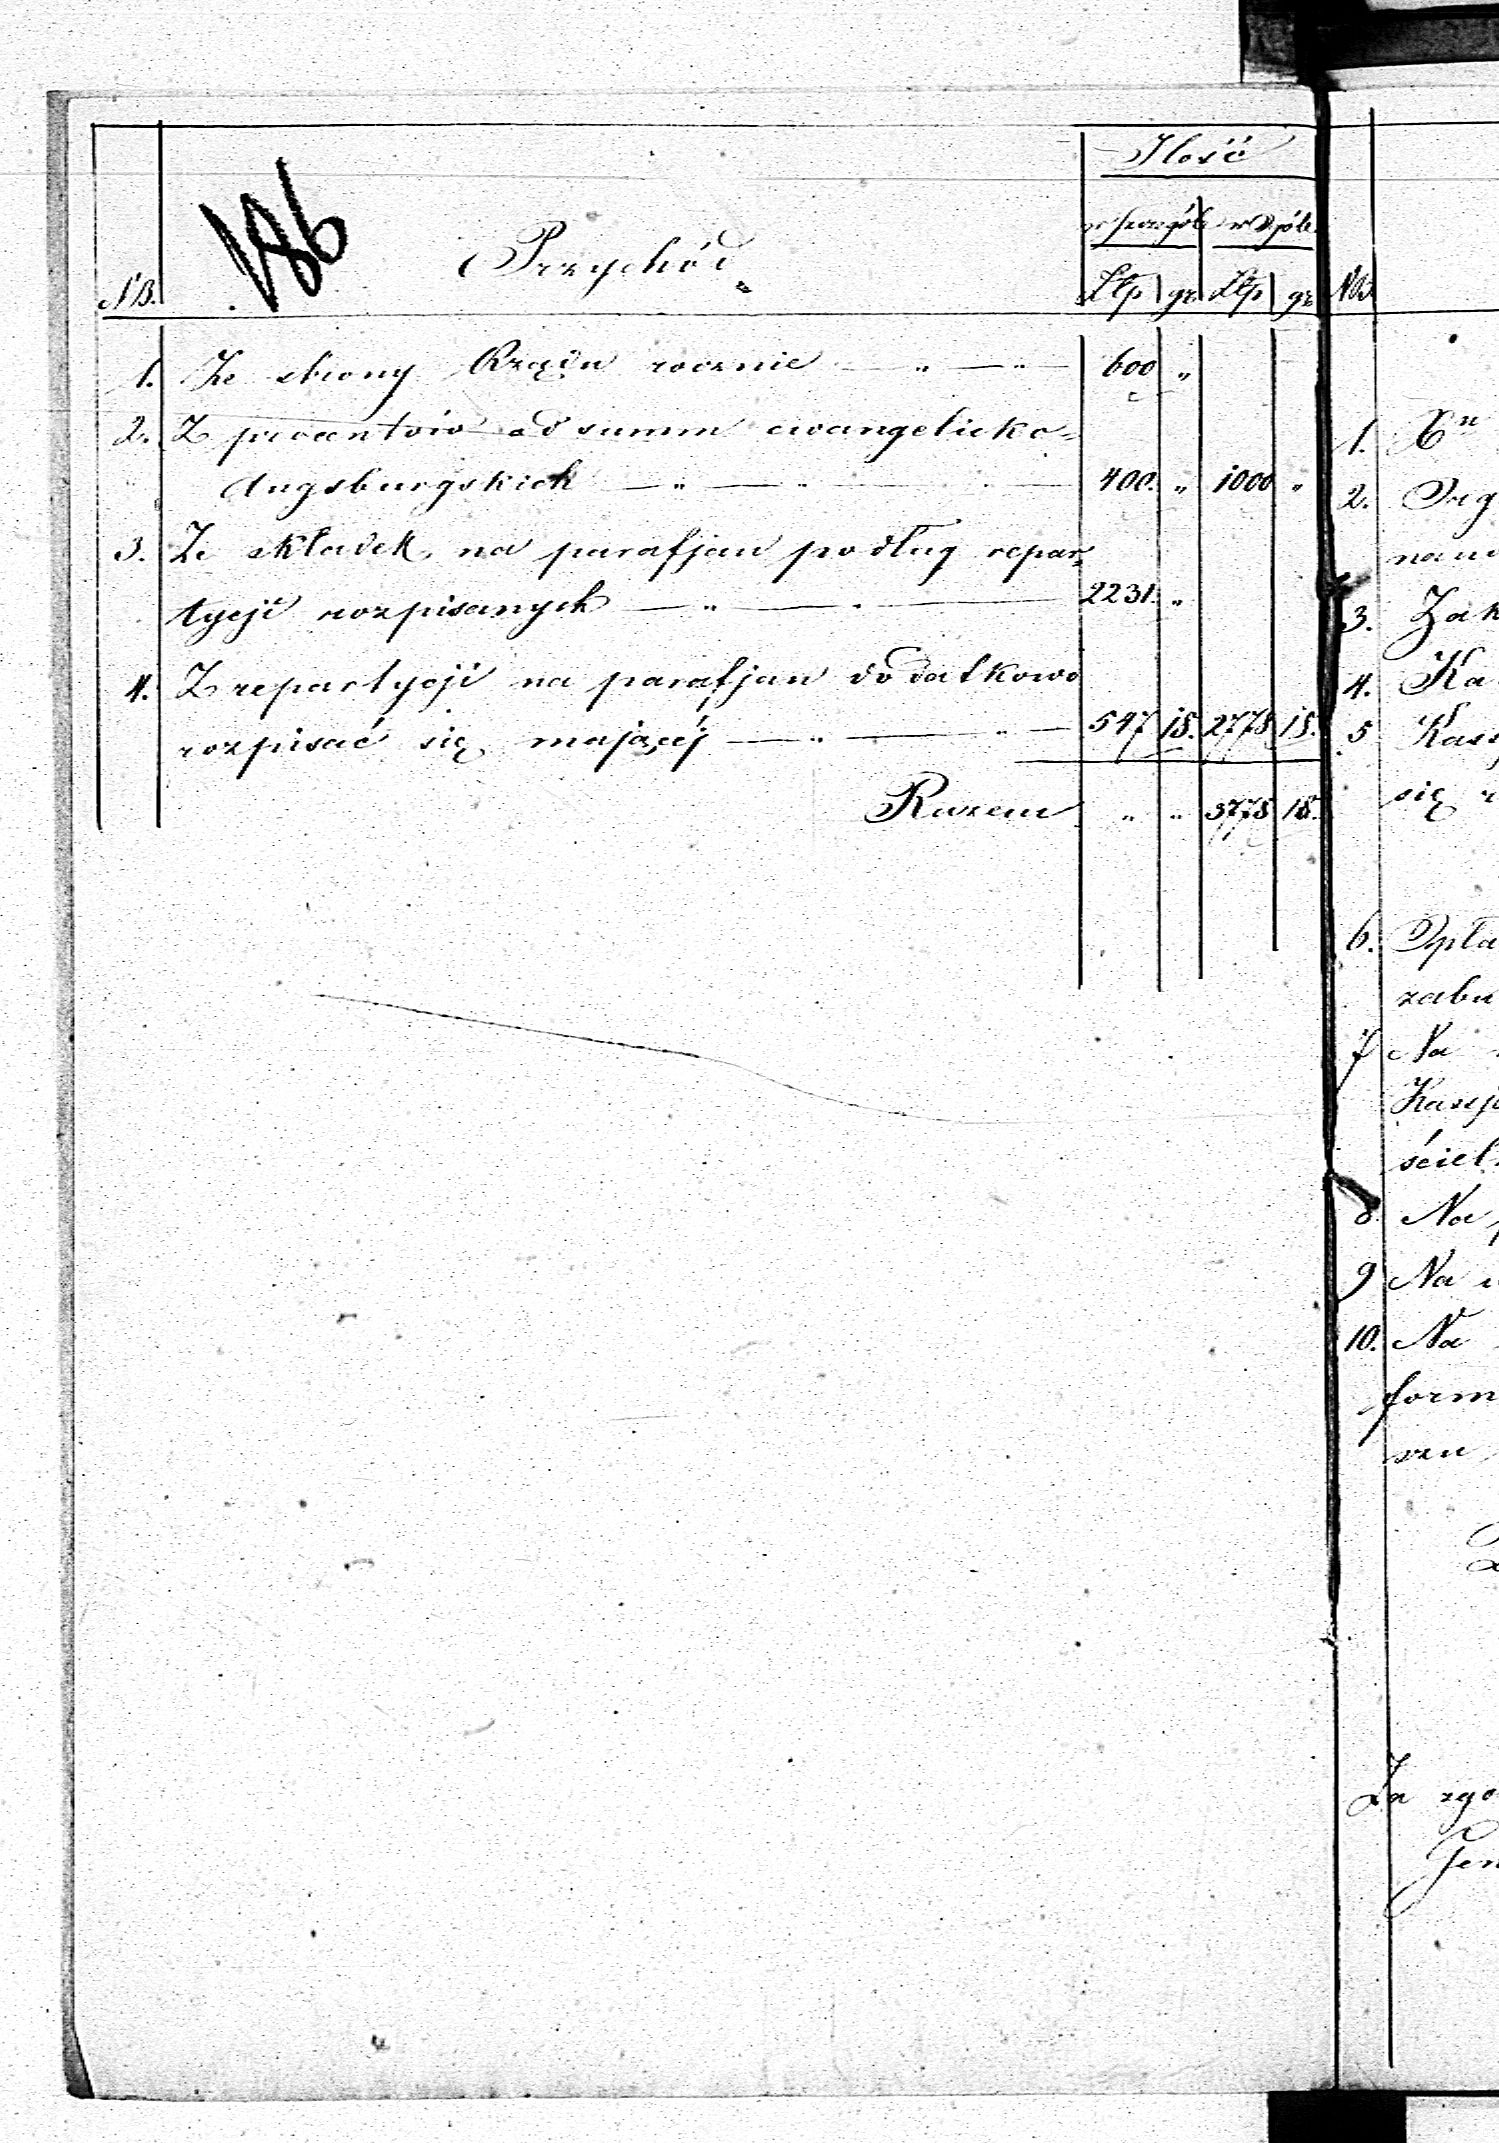 Ilość
186
w szczególe w ogóle
Przychód
NB. Złp gr Złp gr
1. Ze strony Rządu rocznie — „ — „ — 600 „
2. Z procentów od summ ewangelicko-
Augsburgskich — „ — „ — 400. „ 1000 „
3. Ze składek na parafjan podług repar-
tycji rozpisanych — „ — „ — 2231. „
4. Z repartycji na parafjan dodatkowo
rozpisać się mającéj — „ — „ — 547 18. 2778 18.
Razem „ „ 3778 18.
NB.
1. Xn
2. Org
3. Zak
4. Ka
5 Kass
się
6. Opła
zabu
7 Na
ściel
8. Na
9 Na
10. Na
form
Za zgo